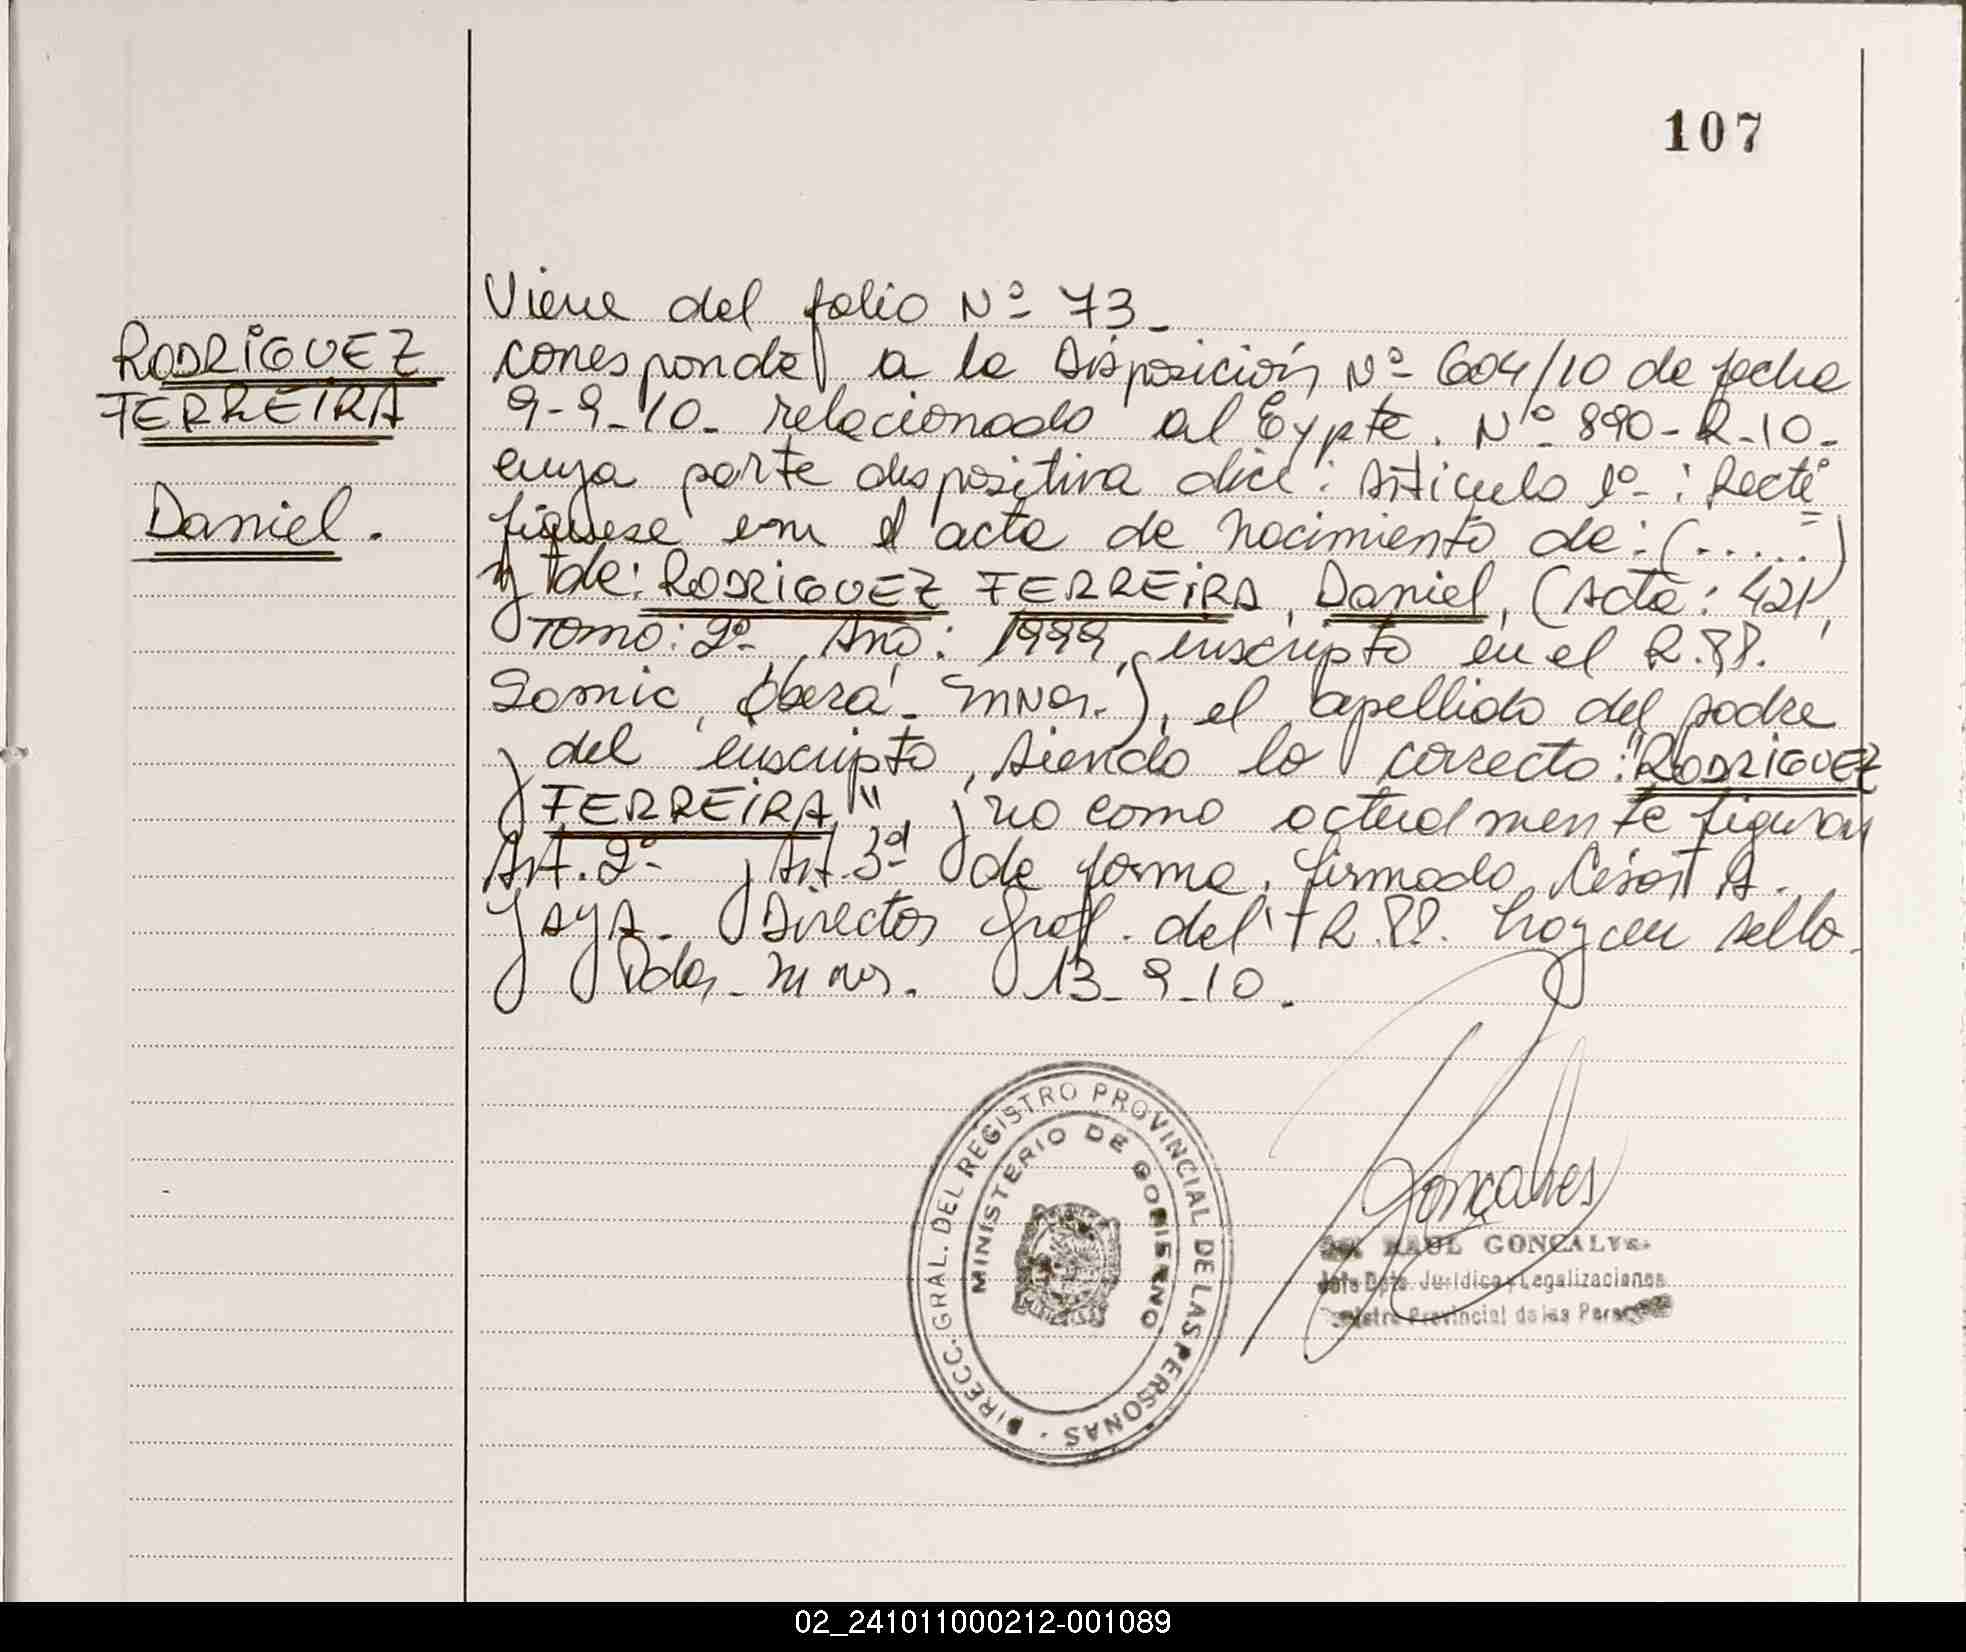 107
Viene del folio Nº 73_
RODRIGUEZ
FERREIRA
Daniel.
corresponde a la Disposición Nº 604/10 de fecha
9-9-10- relacionado al Expte. Nº 890-R-10-
cuya parte dispositiva dice: Artículo 1º-: Recti
fíquese en el acta de nacimiento de: (.....)
y de: RODRIGUEZ FERREIRA, Daniel, (Acta: 421,
Tomo: 2º- Año: 1999, inscripto en el R.PP.
Samic, Oberá- Mnes.), el apellido del padre
del inscripto, siendo lo correcto: "RODRIGUEZ
FERREIRA" y no como actualmente figuran
Art. 2º- y Art. 3º de forma, firmado César A.
Director Gral. del R.PP. hay un sello.
Pdas. Mnes. 13-9-10.
DIRECC. GRAL. DEL REGISTRO PROVINCIAL DE LAS PERSONAS
MINISTERIO DE GOBIERNO
Goncalves
RAUL GONCALVES
Jefe Dpto. Jurídica y Legalizaciones
Registro Provincial de las Personas
02_241011000212-001089